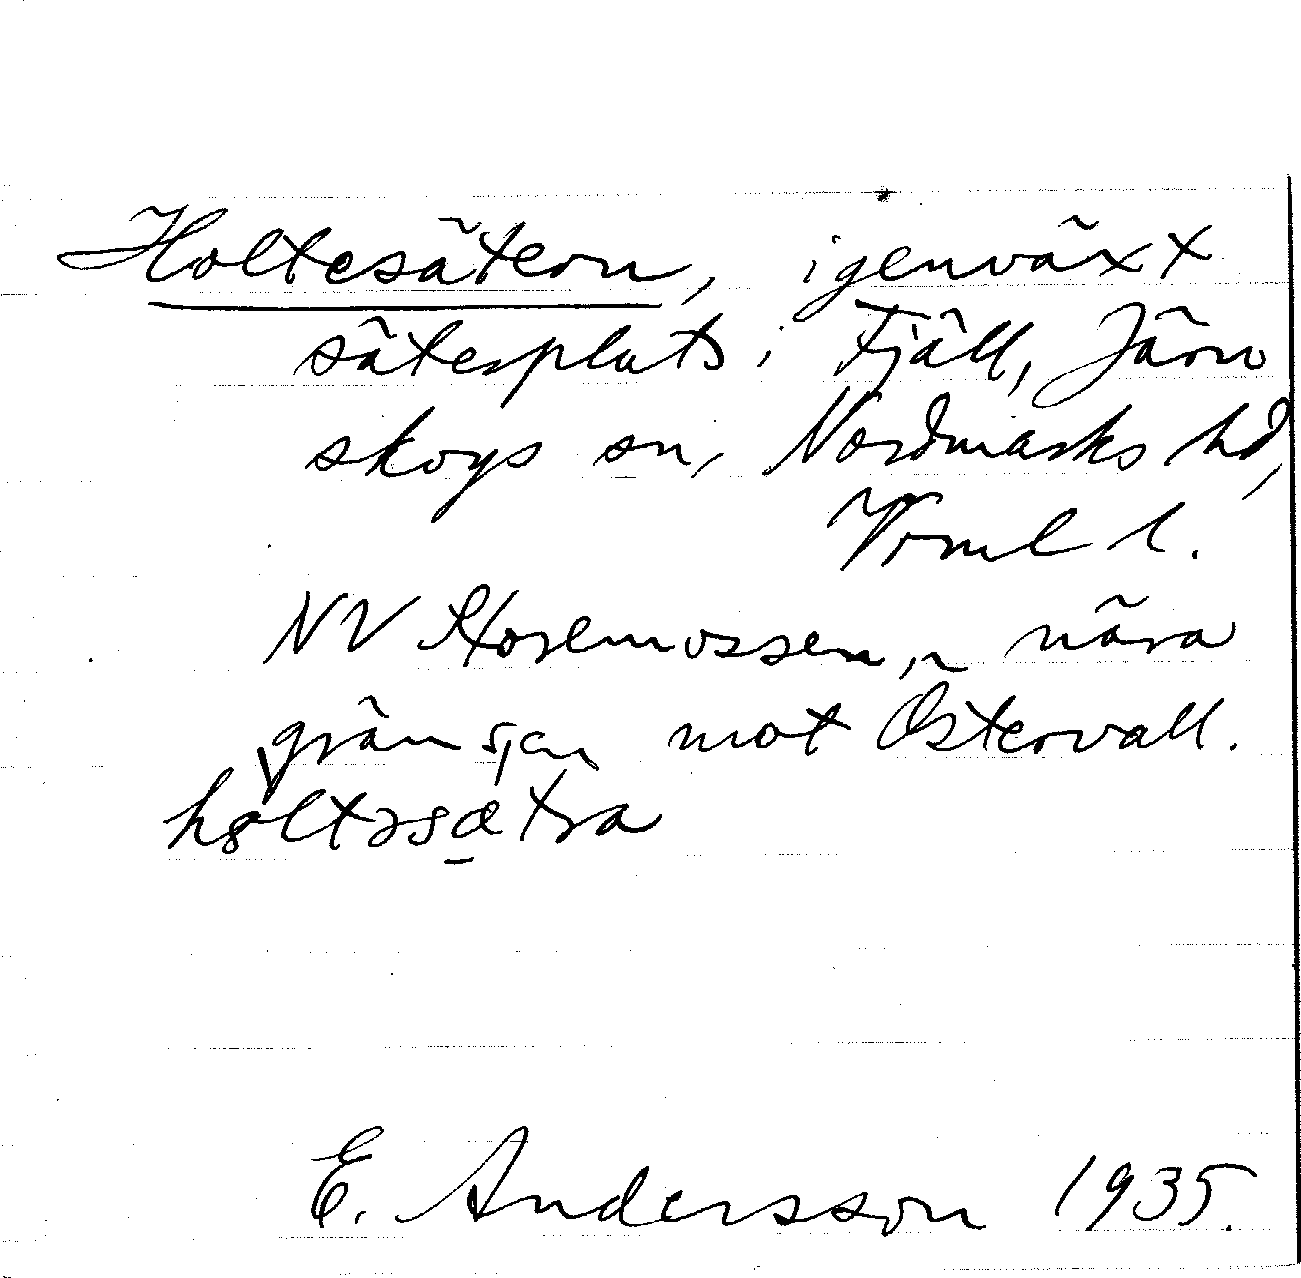 Holtesätern, igenväxt
sätesplats i Fjäll, Järn
skogs sn, Nordmarks hd,
Vrml l.
NV Hosemossen, nära
gränsen mot Östervall.
håltəsætra
E. Andersson 1935.